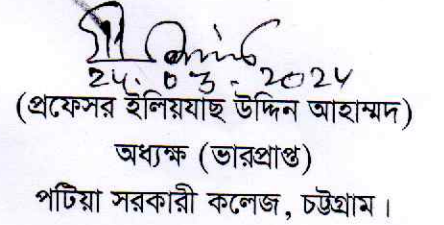 24.03.2024
(প্রফেসর ইলিয়যাছ উদ্দিন আহাম্মদ)
অধ্যক্ষ (ভারপ্রাপ্ত)
পটিয়া সরকারী কলেজ, চট্টগ্রাম।